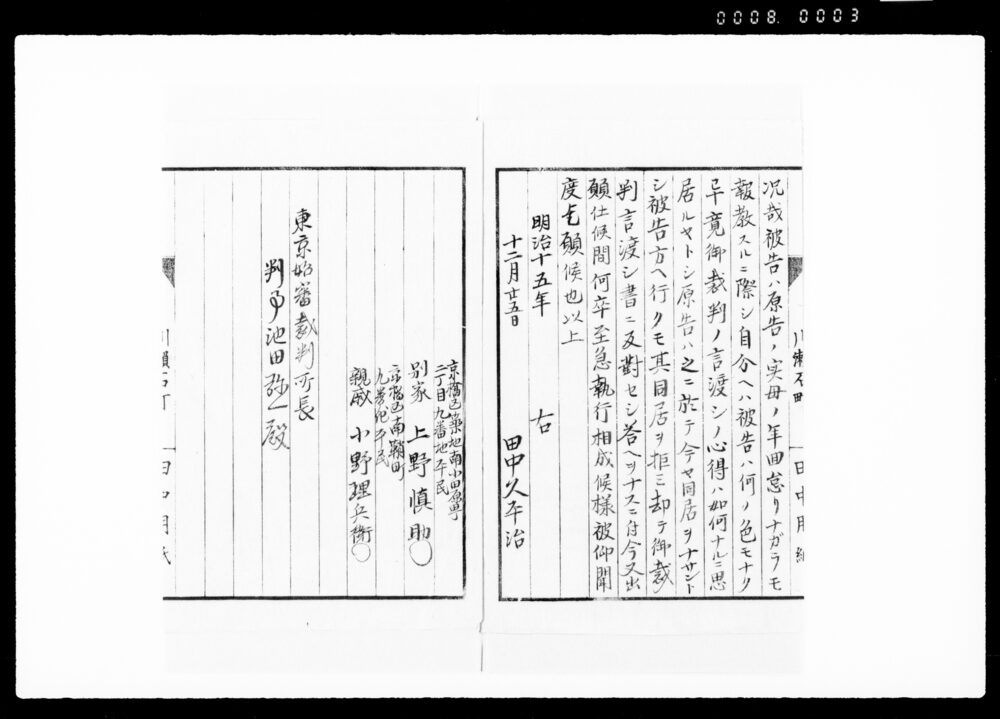 0008. 0003
況哉被告ハ原告ノ実母ノ年回怠リナガラモ
報教スルニ際シ自分ヘハ被告ハ何ノ色モナク
畢竟御裁判ノ言渡シノ心得ハ如何ナルニ思
居ルヤトシ原告ハ之ニ於テ今ヤ同居ヲナサント
シ被告方ヘ行クモ其同居ヲ拒ミ却テ御裁
判言渡シ書ニ反對セシ答ヘヲナスニ付今又出
願仕候間何卒至急執行相成候様被仰聞
度乞願候也以上
明治十五年
十二月廿五日
右
田中久平治
京橋区築地南小田原町
二丁目九番地平民
別家 上野慎助
京橋区南鞘町
九番地平民
親戚 小野理兵衛
東京始審裁判所長
判事池田弥一殿
田中用紙